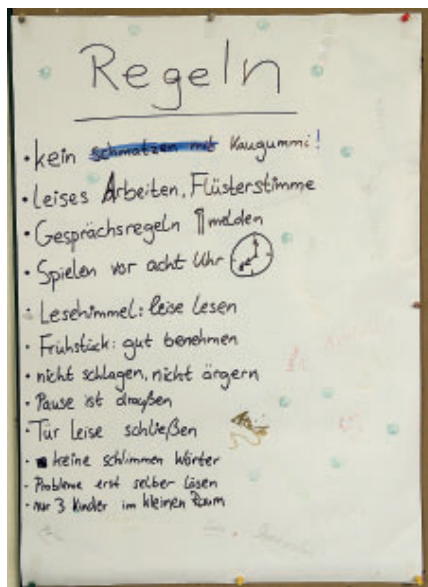 Regeln
· kein schmatzen mit Kaugummi!
· leises Arbeiten, Flüsterstimme
· Gesprächsregeln melden
· Spielen vor acht Uhr
· Lesehimmel: leise lesen
· Frühstück: gut benehmen
· nicht schlagen, nicht ärgern
· Pause ist draußen
· Tür leise schließen
· keine schlimmen Wörter
· Probleme erst selber lösen
· nur 3 Kinder im kleinen Raum